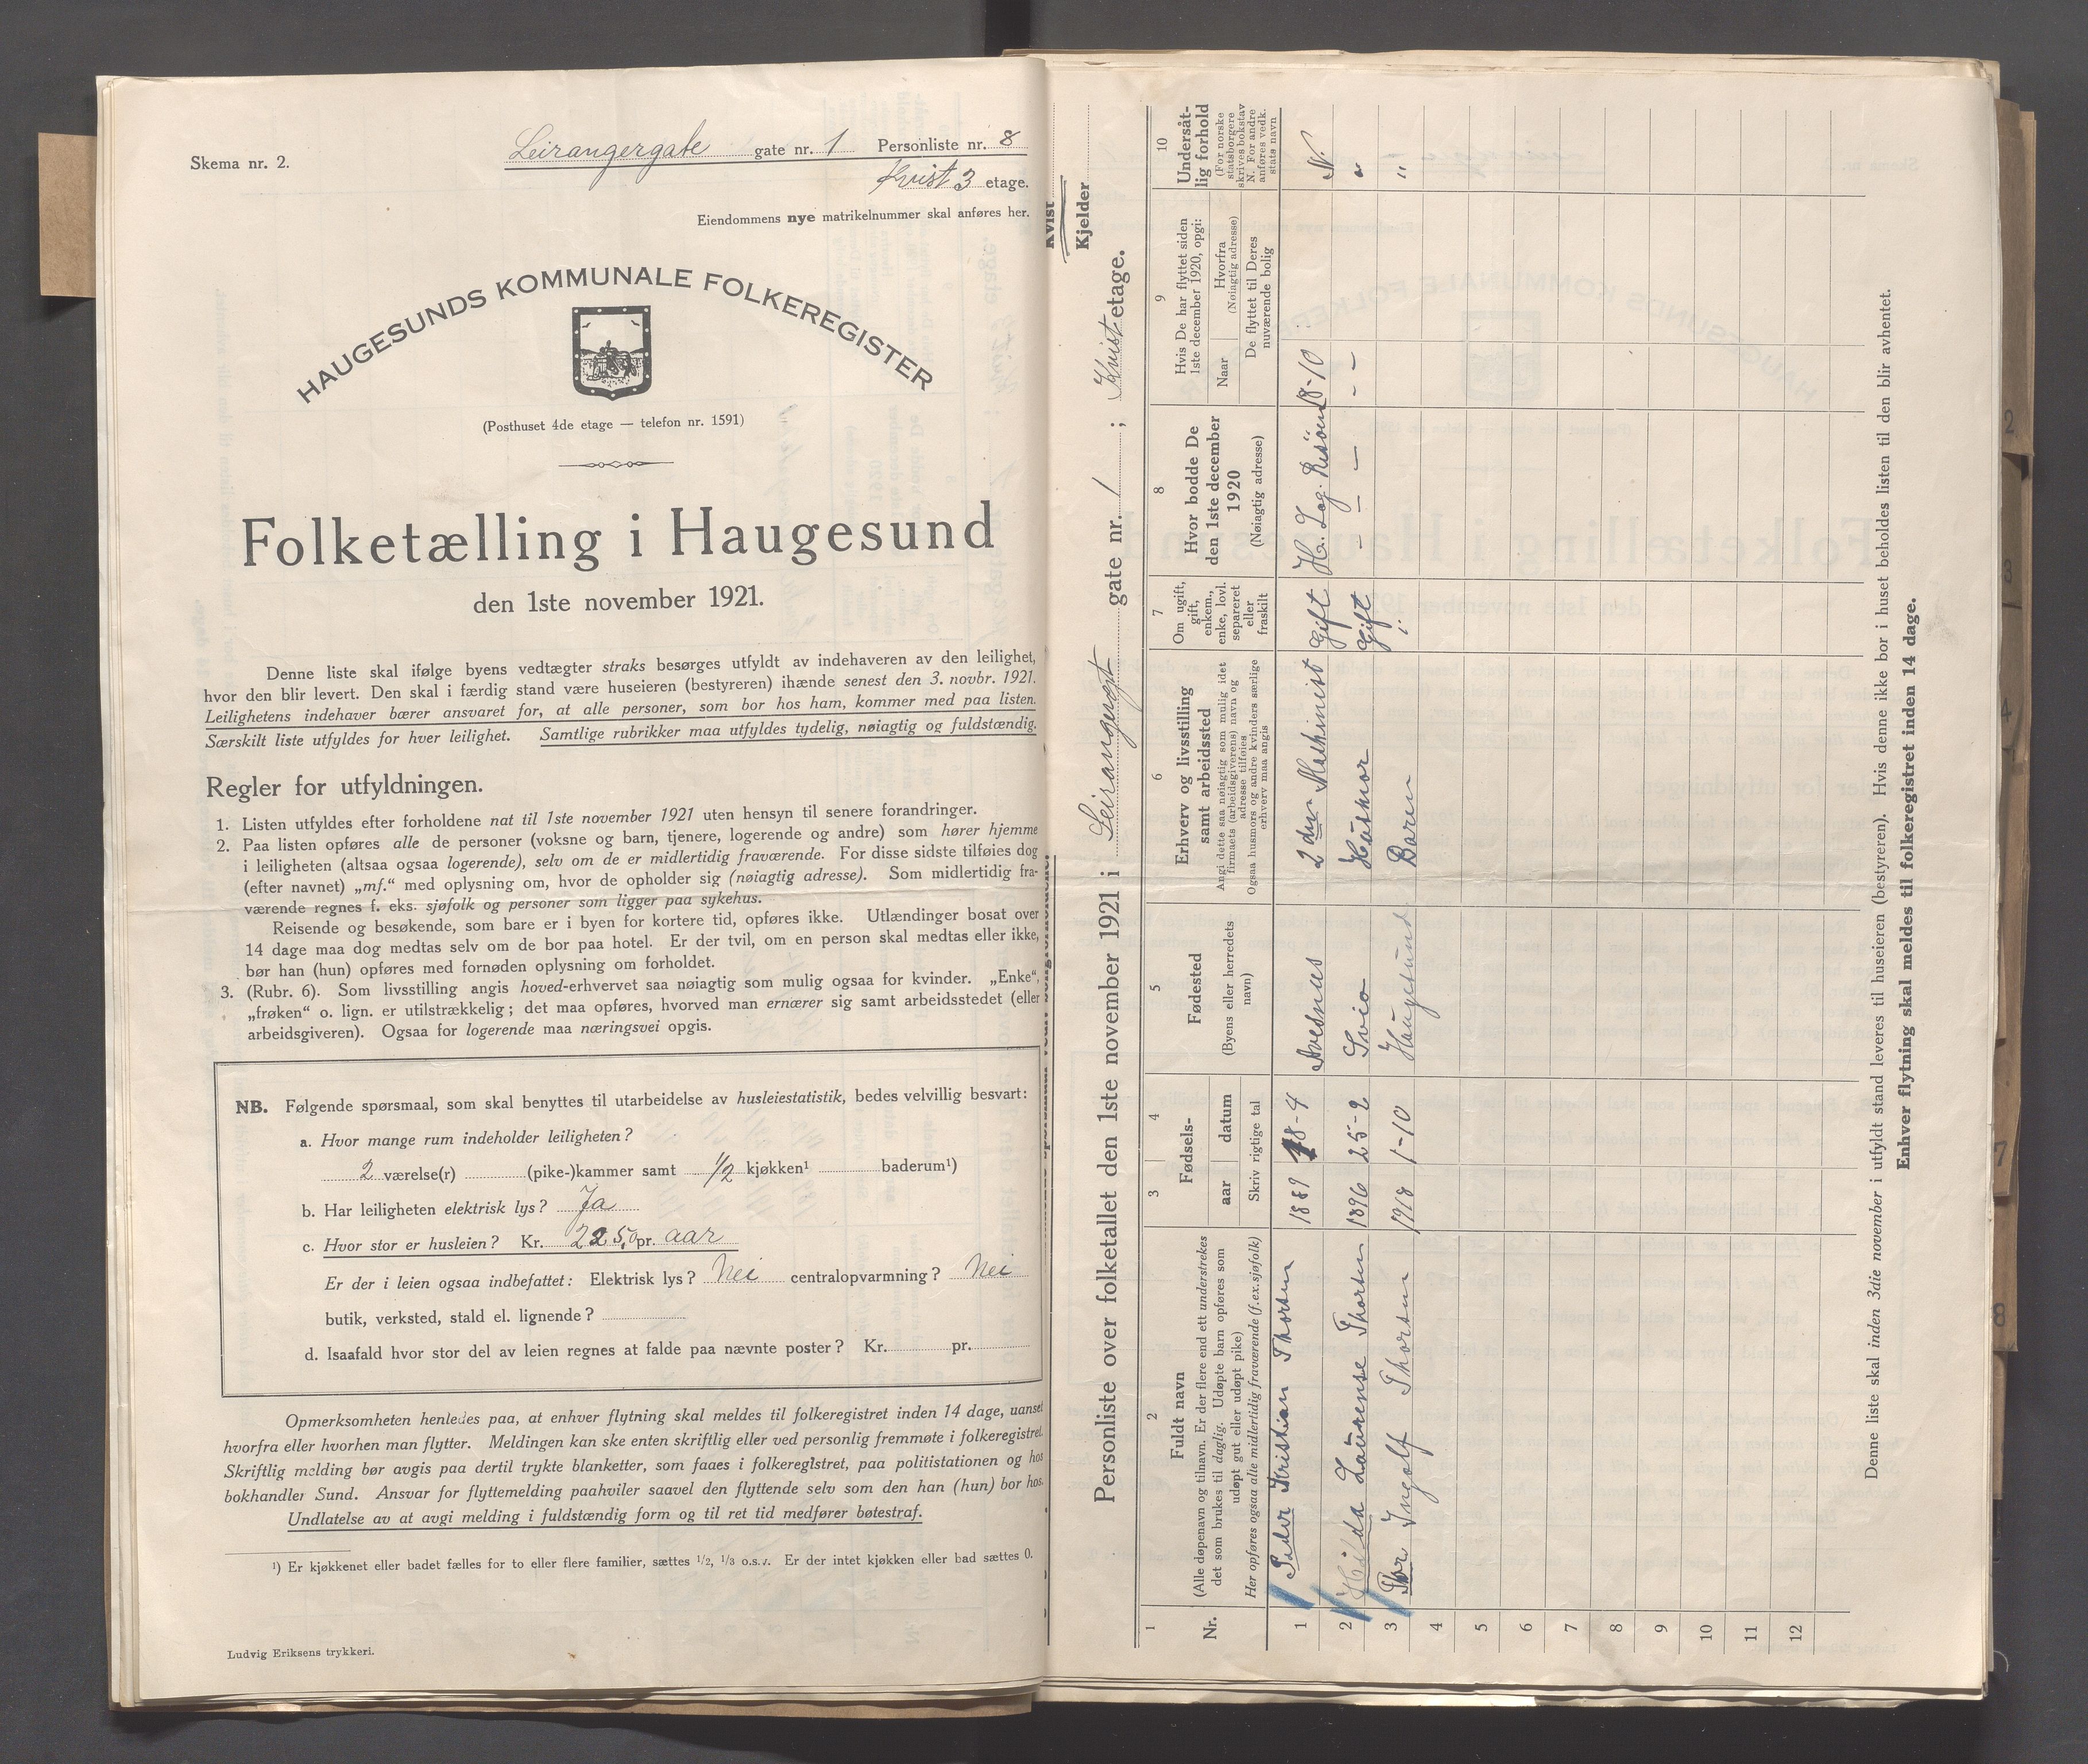 Skema nr. 2.
Leirangergate gate nr. 1 Personliste nr. 8
Kvist 3 etage.
Eiendommens nye matrikelnummer skal anføres her.
HAUGESUNDS KOMMUNALE FOLKEREGISTER
(Posthuset 4de etage — telefon nr. 1591)
Folketælling i Haugesund
den 1ste november 1921.
Denne liste skal ifølge byens vedtægter straks besørges utfyldt av indehaveren av den leilighet,
hvor den blir levert. Den skal i færdig stand være huseieren (bestyreren) ihænde senest den 3. novbr. 1921.
Leilighetens indehaver bærer ansvaret for, at alle personer, som bor hos ham, kommer med paa listen.
Særskilt liste utfyldes for hver leilighet. Samtlige rubrikker maa utfyldes tydelig, nøiagtig og fuldstændig.
Regler for utfyldningen.
1. Listen utfyldes efter forholdene nat til 1ste november 1921 uten hensyn til senere forandringer.
2. Paa listen opføres alle de personer (voksne og barn, tjenere, logerende og andre) som hører hjemme
i leiligheten (altsaa ogsaa logerende), selv om de er midlertidig fraværende. For disse sidste tilføies dog
(efter navnet) „mf.“ med oplysning om, hvor de opholder sig (nøiagtig adresse). Som midlertidig fra-
værende regnes f. eks. sjøfolk og personer som ligger paa sykehus.
Reisende og besøkende, som bare er i byen for kortere tid, opføres ikke. Utlændinger bosat over
14 dage maa dog medtas selv om de bor paa hotel. Er der tvil, om en person skal medtas eller ikke,
bør han (hun) opføres med fornøden oplysning om forholdet.
3. (Rubr. 6). Som livsstilling angis hoved-erhvervet saa nøiagtig som mulig ogsaa for kvinder. „Enke“,
„frøken“ o. lign. er utilstrækkelig; det maa opføres, hvorved man ernærer sig samt arbeidsstedet (eller
arbeidsgiveren). Ogsaa for logerende maa næringsvei opgis.
NB. Følgende spørsmaal, som skal benyttes til utarbeidelse av husleiestatistik, bedes velvillig besvart:
a. Hvor mange rum indeholder leiligheten?
2 værelse(r) (pike-)kammer samt 1/2 kjøkken¹ baderum¹)
b. Har leiligheten elektrisk lys? Ja
c. Hvor stor er husleien? Kr. 225,0 pr. aar
Er der i leien ogsaa indbefattet: Elektrisk lys? Nei centralopvarmning? Nei
butik, verksted, stald el. lignende?
d. Isaafald hvor stor del av leien regnes at falde paa nævnte poster? Kr. pr.
Opmerksomheten henledes paa, at enhver flytning skal meldes til folkeregistret inden 14 dage, uanset
hvorfra eller hvorhen man flytter. Meldingen kan ske enten skriftlig eller ved personlig fremmøte i folkeregistret.
Skriftlig melding bør avgis paa dertil trykte blanketter, som faaes i folkereglstret, paa politistationen og hos
bokhandler Sund. Ansvar for flyttemelding paahviler saavel den flyttende selv som den han (hun) bor hos.
Undlatelse av at avgi melding i fuldstændig form og til ret tid medfører bøtestraf.
¹) Er kjøkkenet eller badet fælles for to eller flere familier, sættes 1/2, 1/3 o.s.v. Er der intet kjøkken eller bad sættes 0.
Ludvig Eriksens trykkeri.
Kvist
Kjelder
Personliste over folketallet den 1ste november 1921 i Leirangergt gate nr. 1; Kvist etage.
1 2 3 4 5 6 7 8 9 10
Nr.
Fuldt navn
(Alle døpenavn og tilnavn. Er der flere end ett understrekes
det som brukes til daglig. Udøpte barn opføres som
udøpt gut eller udøpt pike)
Her opføres ogsaa alle midlertidig fraværende (f. ex. sjøfolk)
Fødsels-
aar datum
Skriv rigtige tal
Fødested
(Byens eller herredets
navn)
Erhverv og livsstilling
samt arbeidssted
Angi dette saa nøiagtig som mulig idet
firmaets (arbeidsgiverens) navn og
adresse tilføies
Ogsaa husmors og andre kvinders særlige
erhverv maa angis
Om ugift,
gift,
enkem.,
enke, lovl.
separeret
eller
fraskilt
Hvor bodde De
den 1ste december
1920
(Nøiagtig adresse)
Hvis De har flyttet siden
1ste december 1920, opgi:
Naar
Hvorfra
(Nøiagtig adresse)
De flyttet til Deres
nuværende bolig
Undersåt-
lig forhold
(For norske
statsborgere
skrives bokstav
N. For andre
anføres vedk.
stats navn
1 Peder Kristian Thorsen 1889 18-4 Avesnes 2den Mashinist Gift 18-10 N.
2 Hilda Laurense Thorsen 1896 25-2 Sveio Husmor Gift — — — — — "
3 Tor Ingolf Thorsen 1918 1-10 Haugesund Baren " "
4
5
6
7
8
9
10
11
12
Denne liste skal inden 3die november i utfyldt stand leveres til huseieren (bestyreren). Hvis denne ikke bor i huset beholdes listen til den blir avhentet.
Enhver flytning skal meldes til folkeregistret inden 14 dage.
2
3
4
7
8